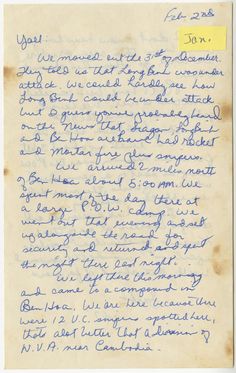 Feb 2nd
Jan.
Yall:
We moved out the 31st of December.
They told us that Long Binh was under
attack. We could hardly see how
Long Binh could be under attack
but I guess you've probably heard
on the News that Saigon, Long Binh
and Ben Hoa are have had rocket
and Mortar fire plus snipers.
We arrived 2 miles north
of Ben Hoa about 5:00 AM. We
spent most of the day there at
a large P.O.W. Camp. We
went out that evening and set
up alongside the road for
security and returned and spent
the night there last night.
We left there this morning
and came to a compound in
Ben Hoa. We are here because there
were 12 V.C. snipers spotted here,
thats alot better that a division of
N.V.A. near Cambodia.